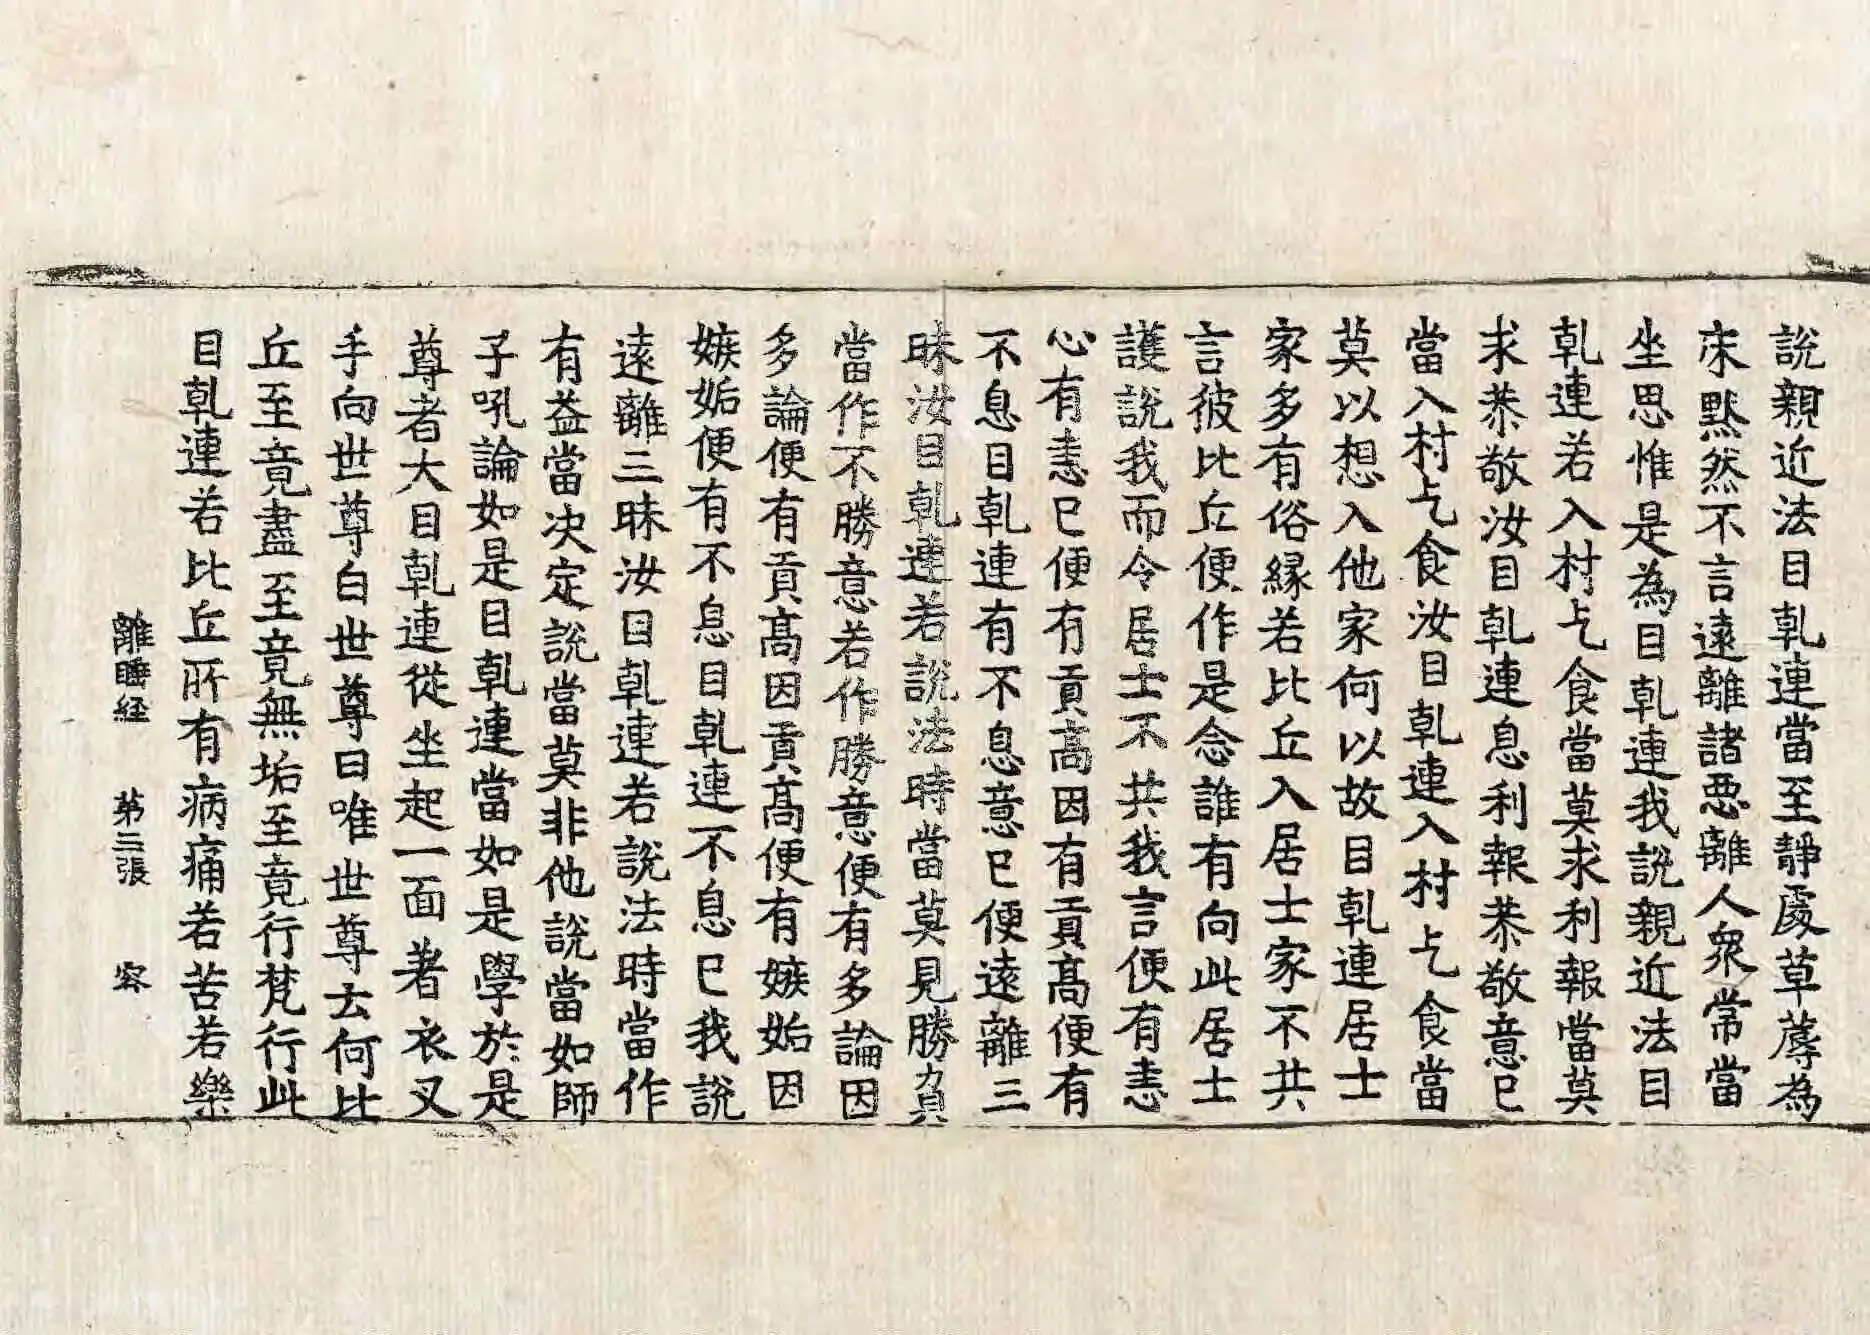 說親近法目乹連當至靜處草蓐為
床黙然不言遠離諸惡離人衆常當
坐思惟是為目乹連我說親近法目
乹連若入村乞食當莫求利報當莫
求恭敬汝目乹連息利報恭敬意已
當入村乞食汝目乹連入村乞食當
莫以想入他家何以故目乹連居士
家多有俗緣若比丘入居士家不共
言彼比丘便作是念誰有向此居士
護說我而令居士不共我言便有恚
心有恚已便有貢高因有貢高便有
不息目乹連有不息意已便遠離三
昧汝目乹連若說法時當莫見勝負
當作不勝意若作勝意便有多論因
多論便有貢高因貢高便有嫉妬因
嫉妬便有不息目乹連不息已我說
遠離三昧汝目乹連若說法時當作
有益當决定說當莫非他說當如師
子吼論如是目乹連當如是學於是
尊者大目乹連從坐起一面著衣叉
手向世尊白世尊曰唯世尊云何比
丘至竟盡至竟無垢至竟行梵行此
目乹連若比丘所有病痛若苦若樂
離睡経　第三張　容